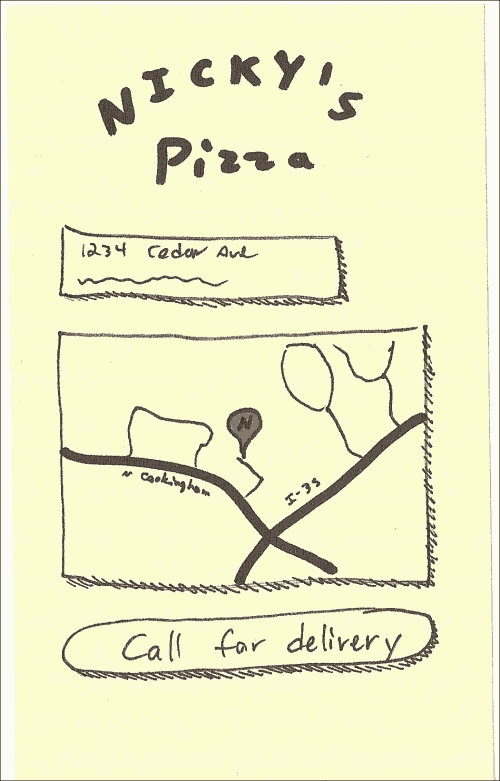 NICKY's
Pizza
1234 Cedar Ave
N
N Cookingham
I-35
Call for delivery